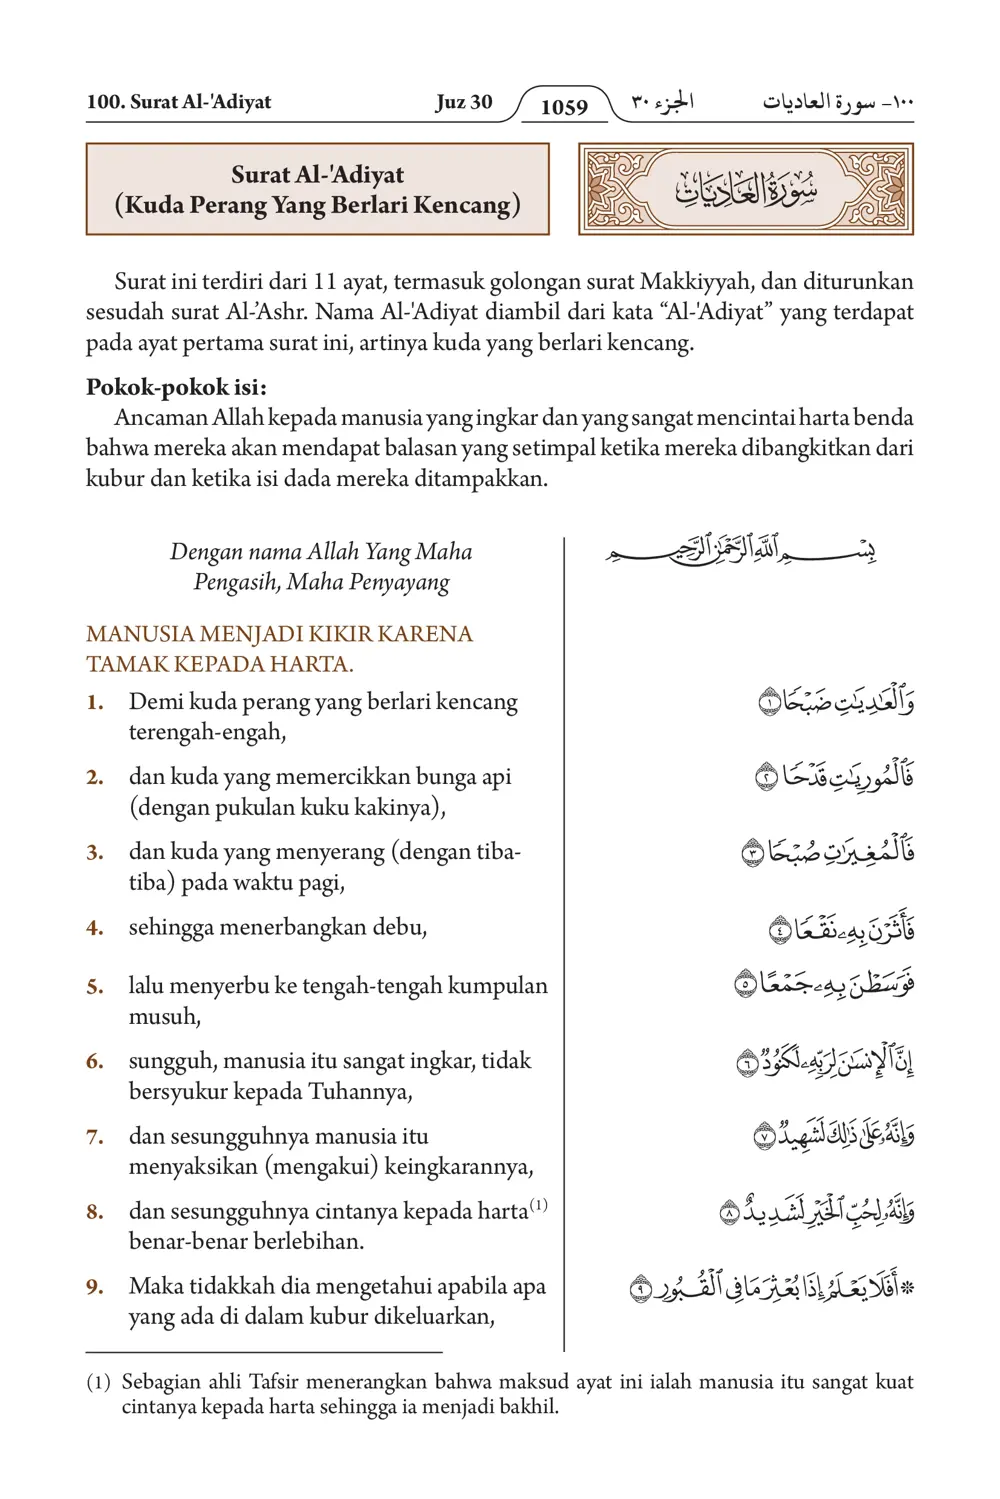 100. Surat Al-'Adiyat Juz 30 1059 الجزء ٣٠ ١٠٠- سورة العاديات
Surat Al-'Adiyat
(Kuda Perang Yang Berlari Kencang)
سُورَةُ العَادِيَاتِ
Surat ini terdiri dari 11 ayat, termasuk golongan surat Makkiyyah, dan diturunkan
sesudah surat Al-’Ashr. Nama Al-'Adiyat diambil dari kata “Al-'Adiyat” yang terdapat
pada ayat pertama surat ini, artinya kuda yang berlari kencang.
Pokok-pokok isi:
Ancaman Allah kepada manusia yang ingkar dan yang sangat mencintai harta benda
bahwa mereka akan mendapat balasan yang setimpal ketika mereka dibangkitkan dari
kubur dan ketika isi dada mereka ditampakkan.
Dengan nama Allah Yang Maha
Pengasih, Maha Penyayang
بِسْمِ ٱللَّهِ ٱلرَّحْمَٰنِ ٱلرَّحِيمِ
MANUSIA MENJADI KIKIR KARENA
TAMAK KEPADA HARTA.
1. Demi kuda perang yang berlari kencang
terengah-engah,
وَٱلْعَٰدِيَٰتِ ضَبْحًا ١
2. dan kuda yang memercikkan bunga api
(dengan pukulan kuku kakinya),
فَٱلْمُورِيَٰتِ قَدْحًا ٢
3. dan kuda yang menyerang (dengan tiba-
tiba) pada waktu pagi,
فَٱلْمُغِيرَٰتِ صُبْحًا ٣
4. sehingga menerbangkan debu,
فَأَثَرْنَ بِهِۦ نَقْعًا ٤
5. lalu menyerbu ke tengah-tengah kumpulan
musuh,
فَوَسَطْنَ بِهِۦ جَمْعًا ٥
6. sungguh, manusia itu sangat ingkar, tidak
bersyukur kepada Tuhannya,
إِنَّ ٱلْإِنسَٰنَ لِرَبِّهِۦ لَكَنُودٌ ٦
7. dan sesungguhnya manusia itu
menyaksikan (mengakui) keingkarannya,
وَإِنَّهُۥ عَلَىٰ ذَٰلِكَ لَشَهِيدٌ ٧
8. dan sesungguhnya cintanya kepada harta(1)
benar-benar berlebihan.
وَإِنَّهُۥ لِحُبِّ ٱلْخَيْرِ لَشَدِيدٌ ٨
9. Maka tidakkah dia mengetahui apabila apa
yang ada di dalam kubur dikeluarkan,
۞ أَفَلَا يَعْلَمُ إِذَا بُعْثِرَ مَا فِى ٱلْقُبُورِ ٩
(1) Sebagian ahli Tafsir menerangkan bahwa maksud ayat ini ialah manusia itu sangat kuat
cintanya kepada harta sehingga ia menjadi bakhil.